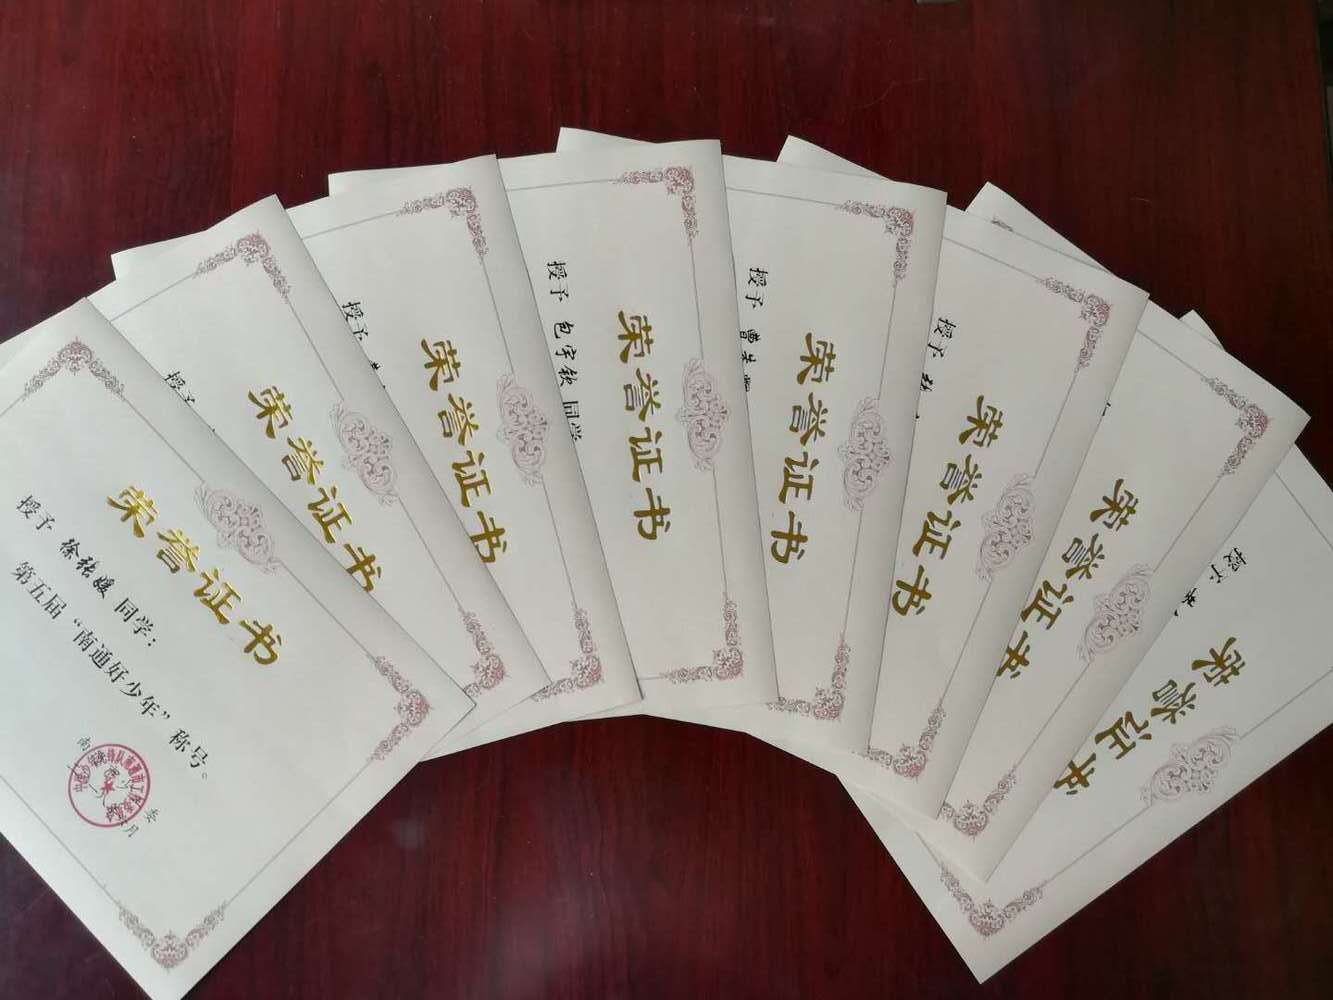 荣誉证书
授予 徐张媛 同学：
第五届“南通好少年”称号。
荣誉证书
授予
荣誉证书
授予
荣誉证书
授予 包宇钦 同学
荣誉证书
授予 曹
荣誉证书
授予
荣誉证书
荣誉证书
授予